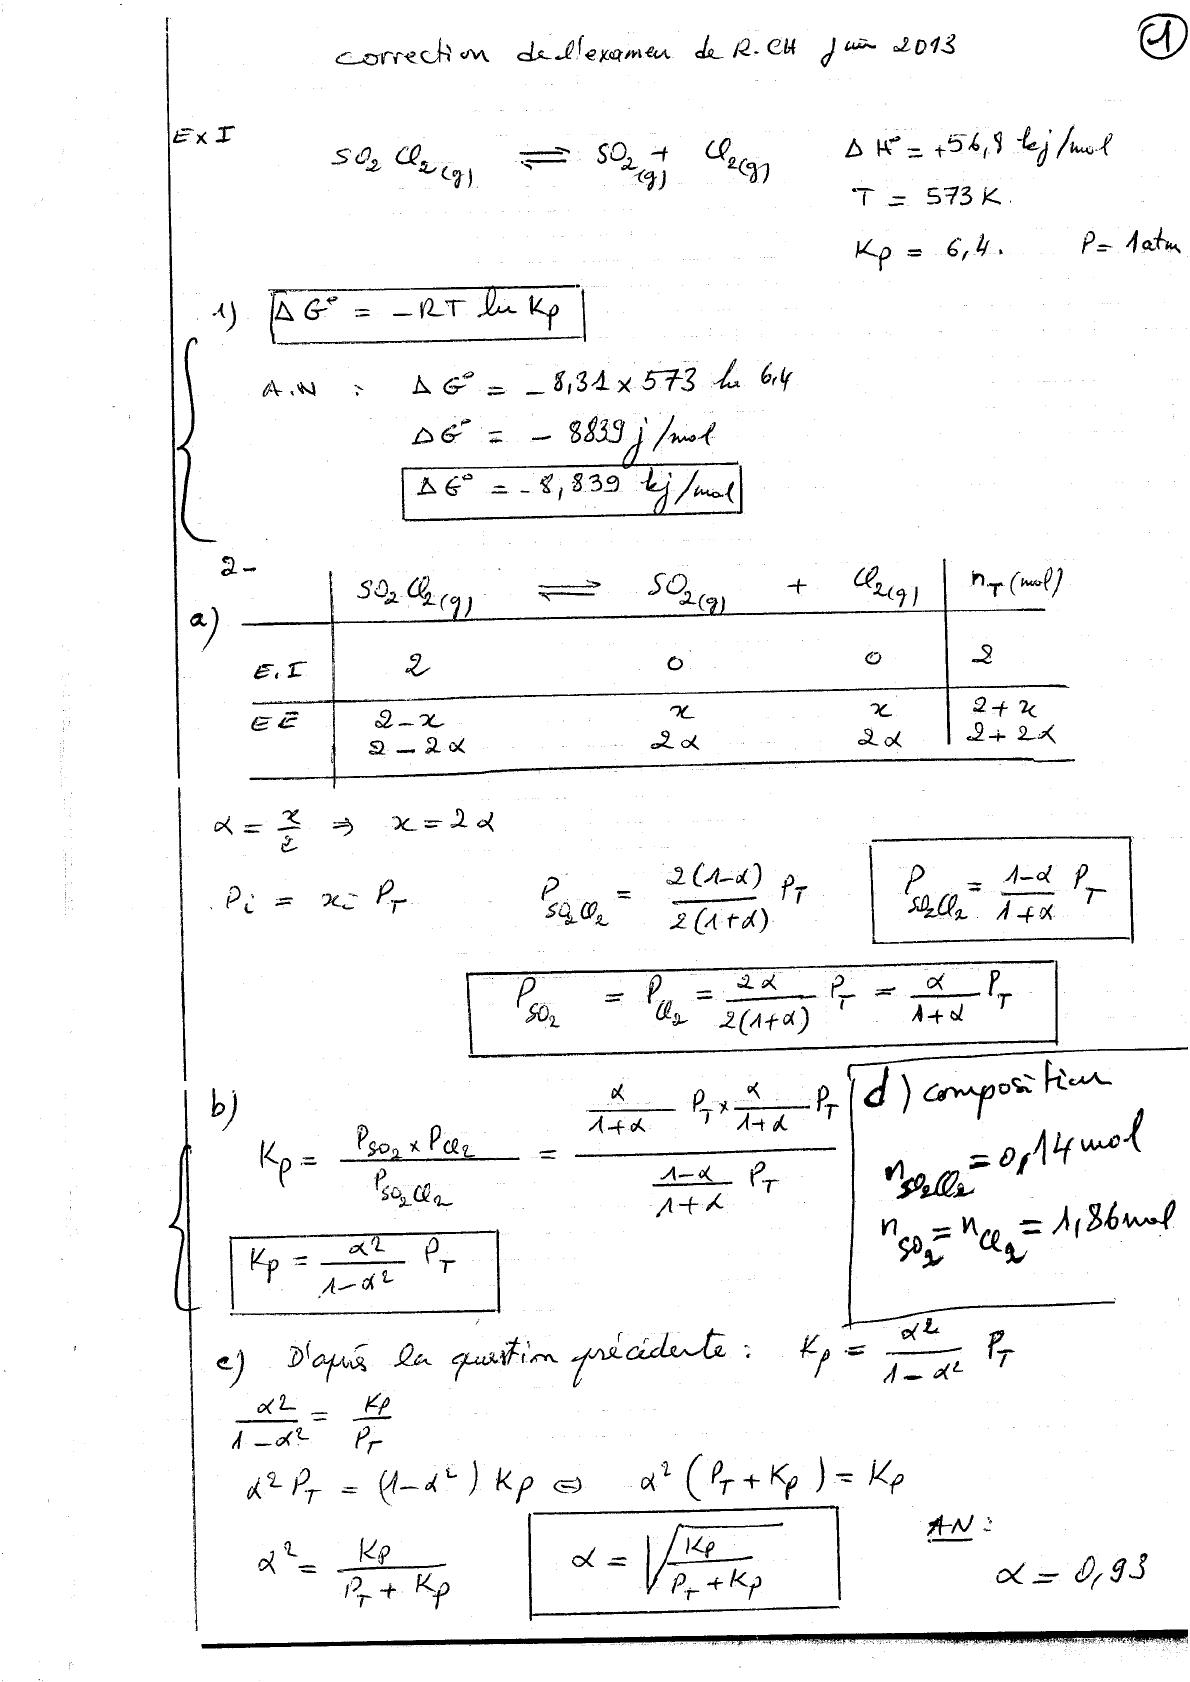 correction de l'examen de R.CH juin 2013
1
Ex I
SO2Cl2(g) ⇌ SO2(g) + Cl2(g) ΔH° = +56,8 kj/mol
T = 573 K.
Kp = 6,4. P = 1 atm
1) ΔG° = -RT ln Kp
A.N : ΔG° = -8,31 x 573 ln 6,4
ΔG° = -8839 j/mol
ΔG° = -8,839 kj/mol
2-
a) SO2Cl2(g) ⇌ SO2(g) + Cl2(g) nT (mol)
E.I 2 0 0 2
EE 2-x x x 2+x
2-2α 2α 2α 2+2α
α = x/2 ⇒ x = 2α
Pi = xi PT P SO2Cl2 = 2(1-α)/2(1+α) PT P SO2Cl2 = 1-α/1+α PT
P SO2 = P Cl2 = 2α/2(1+α) PT = α/1+α PT
b) Kp = P SO2 x P Cl2 / P SO2Cl2 = (α/1+α PT x α/1+α PT) / (1-α/1+α PT)
Kp = α²/1-α² PT
d) composition
n SO2Cl2 = 0,14 mol
n SO2 = n Cl2 = 1,86 mol
c) D'après la question précédente : Kp = α²/1-α² PT
α²/1-α² = Kp/PT
α² PT = (1-α²) Kp ⇔ α² (PT + Kp) = Kp
α² = Kp/PT + Kp α = √(Kp/PT + Kp) AN :
α = 0,93